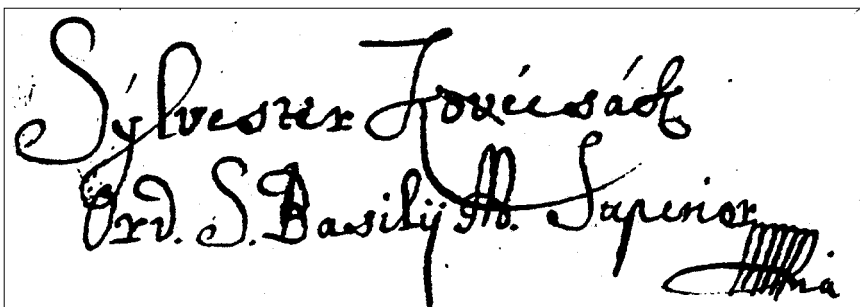 Sÿlvester Kovécsák
Ord. S. Basilij M. Superior